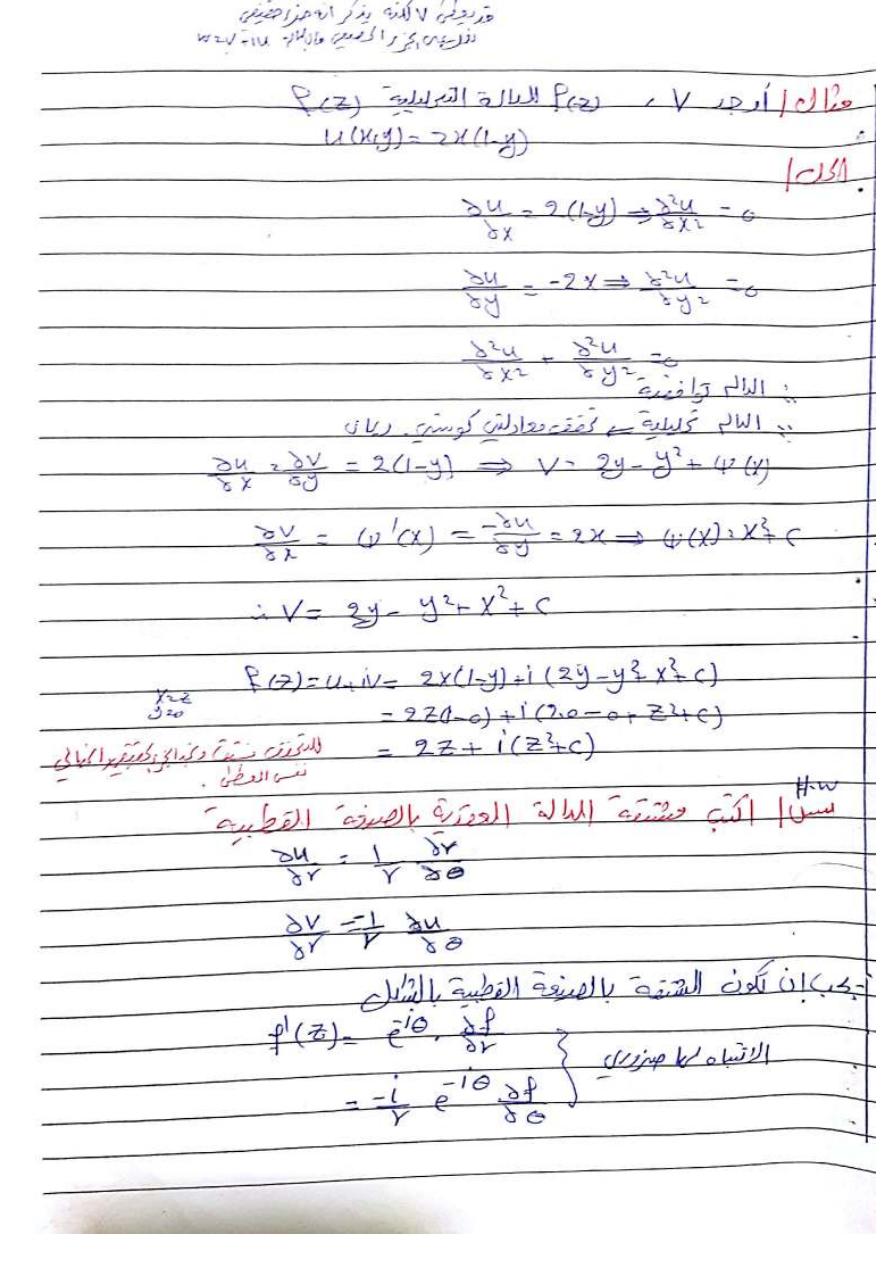 قد يعطى V لكنه يذكر انه جزء حقيقي
مثال/ أوجد V ، f(z) الدالة التحليلية f(z)
u(x,y) = 2x(1-y)
الحل/
∂u/∂x = 2(1-y) ⇒ ∂²u/∂x² = 0
∂u/∂y = -2x ⇒ ∂²u/∂y² = 0
∂²u/∂x² + ∂²u/∂y² = 0
∴ الدالة توافقية
∵ الدالة تحليلية ← تحقق معادلتي كوشي. ريمان
∂u/∂x = ∂V/∂y = 2(1-y) ⇒ V = 2y - y² + ψ(x)
∂V/∂x = ψ'(x) = -∂u/∂y = 2x ⇒ ψ(x) = x² + c
∴ V = 2y - y² + x² + c
f(z) = u + iv = 2x(1-y) + i(2y - y² + x² + c)
x=z
y=0
= 2z(1-0) + i(2.0 - 0 + z² + c)
= 2z + i(z² + c)
للتحقق نشتق ونجد الجزء الحقيقي والخيالي
نفس المعطى.
H.W
س/ اكتب مشتقة الدالة العقدية بالصيغة القطبية
∂u/∂r = 1/r ∂r/∂θ
∂V/∂r = -1/r ∂u/∂θ
يجب ان تكون المشتقة بالصيغة القطبية بالشكل
f'(z) = e^-iθ . ∂f/∂r
= -i/r e^-iθ ∂f/∂θ
الانتباه لها ضروري